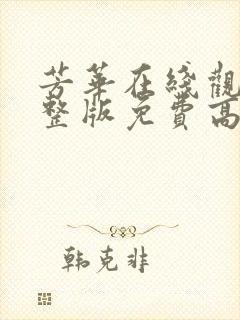 芳华在线觀
整版免費高
韩克非